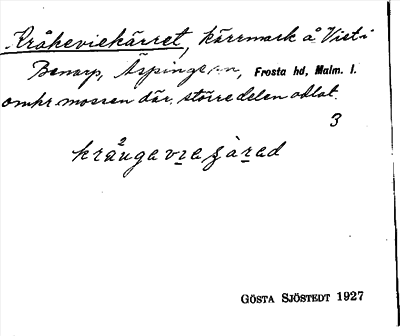 Kråkeviekärret, kärrmark å Viet i
Benarp, Äspinge sn, Frosta hd, Malm. l.
omkr. mossen där, större delen odlat.
3
GÖSTA SJÖSTEDT 1927